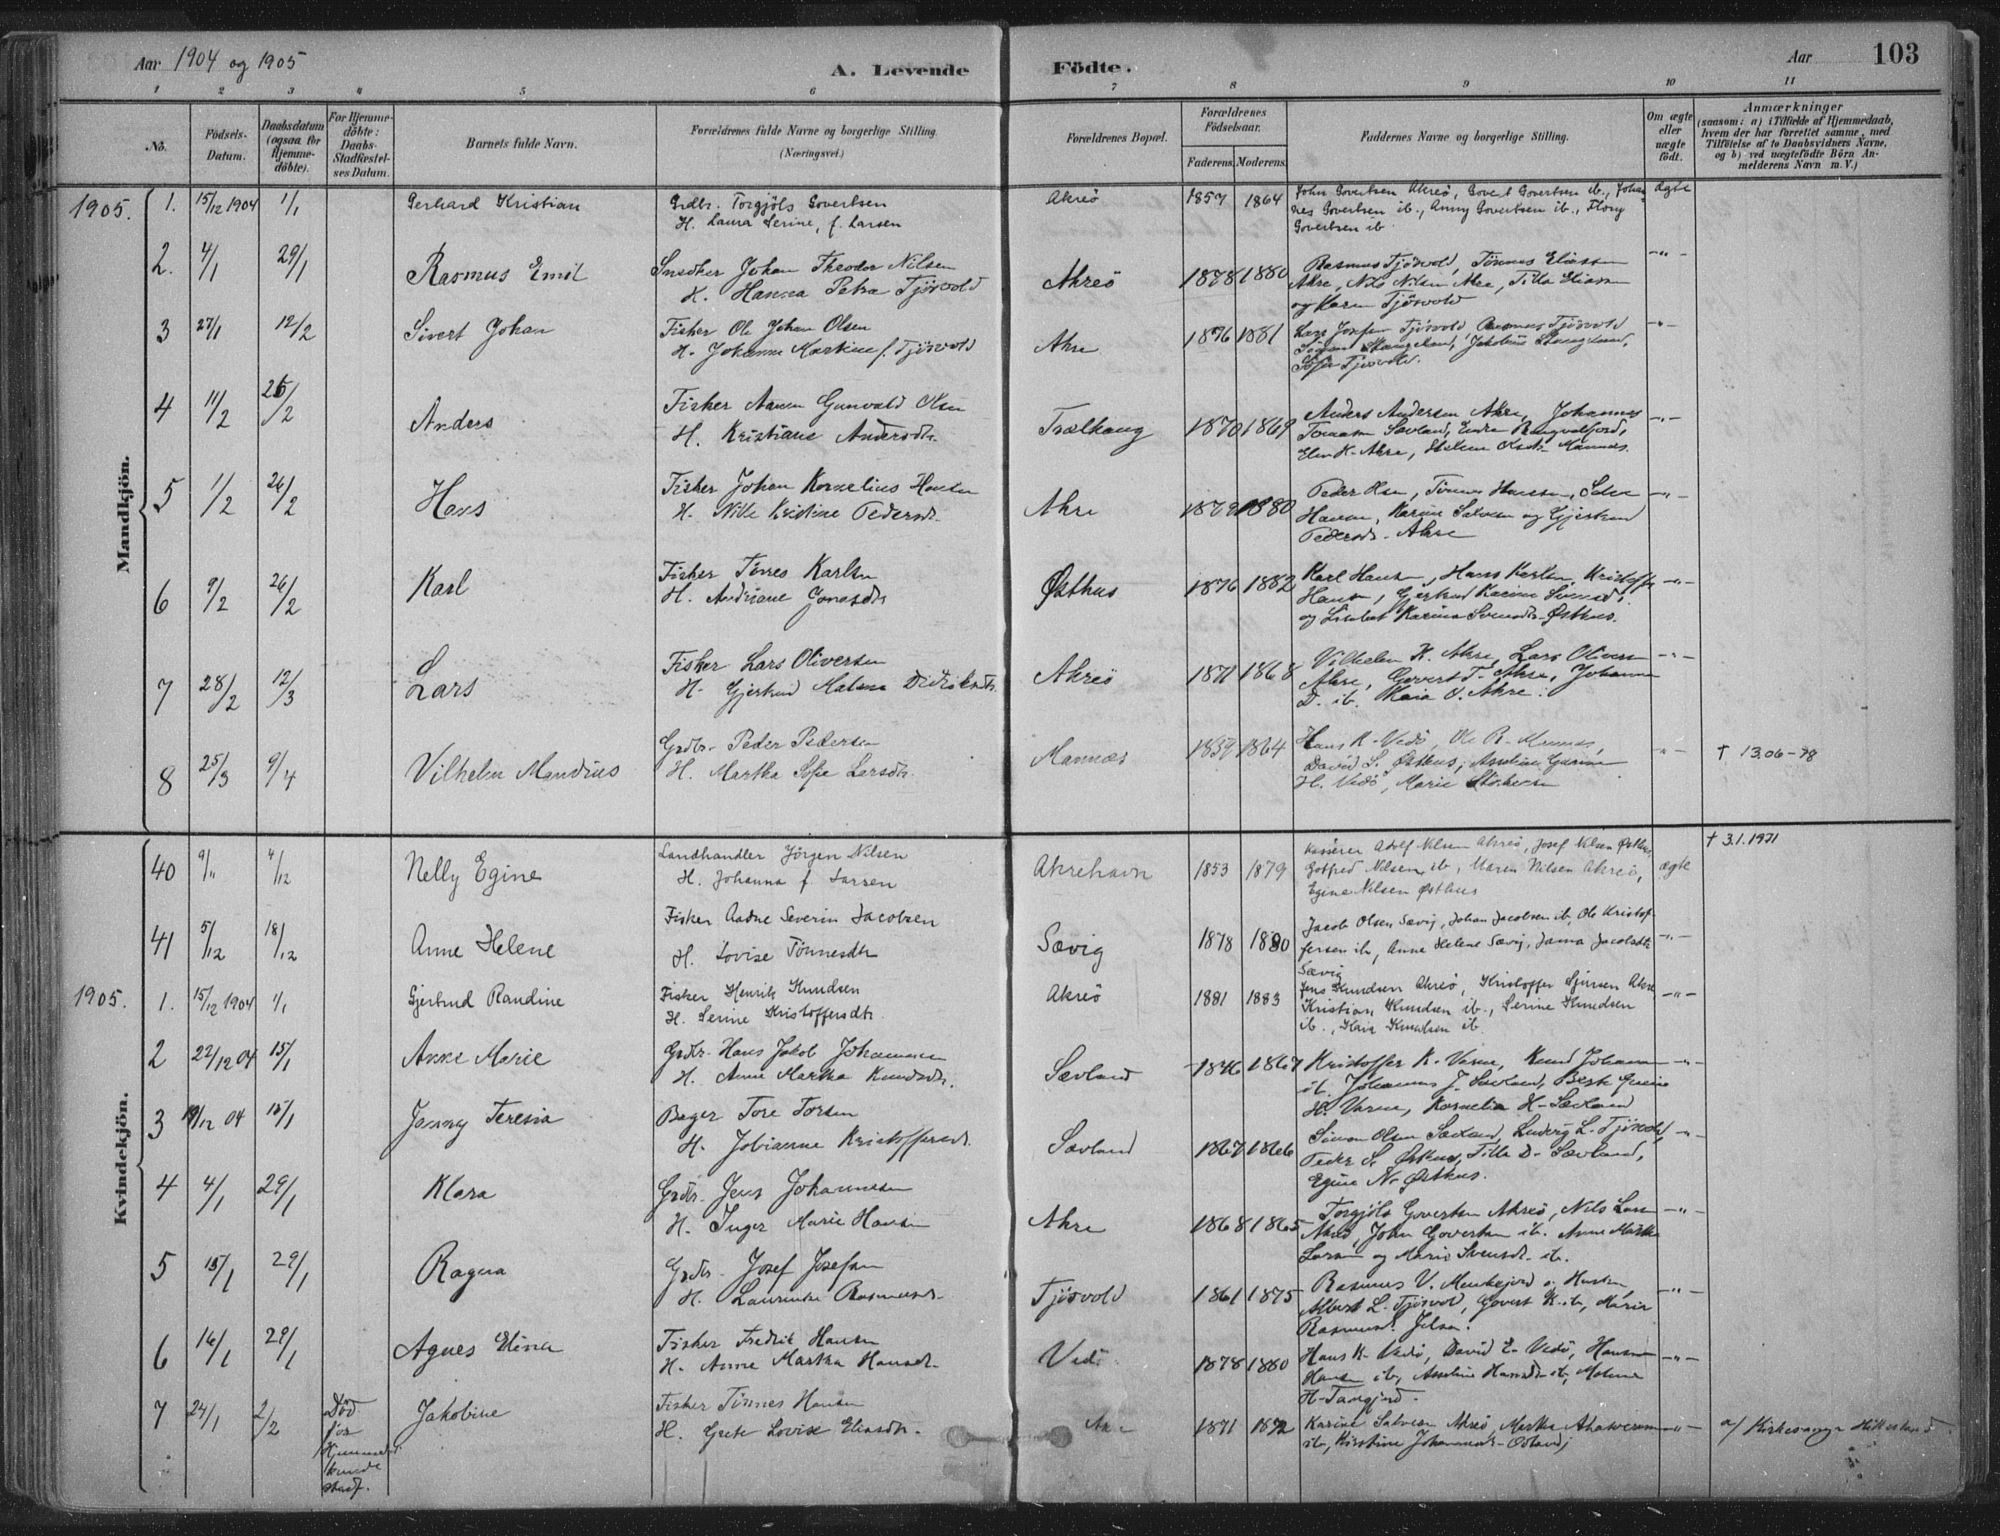 Aar 1904 og 1905
A. Levende Födte.
Aar 103
1 2 3 4 5 6 7 8 9 10 11
No.
Födsels-
Datum.
Daabsdatum
(ogsaa for
Hjemme-
döbte).
For Hjemme-
döbte:
Daabs-
Stadfæstel-
ses Datum.
Barnets fulde Navn.
Forældrenes fulde Navne og borgerlige Stilling.
(Næringsvei.)
Forældrenes Bopæl.
Forældrenes
Födselsaar.
Faderens. Moderens.
Faddernes Navne og borgerlige Stilling.
Om ægte
eller
uægte
födt.
Anmærkninger
(saasom: a) i Tilfælde af Hjemmedaab,
hvem der har forrettet samme, med
Tilföielse af to Daabsvidners Navne,
og b) ved uægtefödte Börn An-
melderens Navn m. V.)
Mandkjön.
1905. 1. 15/12 1904 1/1 Gerhard Kristian
Grdbr. Torgjöls Govertsen
H. Laura Serine, f. Larsen
Akreö 1857 1864
John Govertsen Akreö, Govert Govertsen ib., Johan-
nes Govertsen ib., Anny Govertsen ib., Flory
Govertsen ib.
ægte
2. 4/1 29/1 Rasmus Emil
Snedker Johan Theodor Nilsen
H. Hanna Petra Tjösvold
Akreö 1878 1880
Rasmus Tjösvold, Tönnes Eliassen
Akre, Nils Nilsen Akre, Tilla Eliassen
og Karen Tjösvold
-"-
3 27/1 12/2 Sivert Johan
Fisker Ole Johan Olsen
H. Johanne Martine f. Tjösvold
Akre 1876 1881
Lars Josefsen Tjösvold, Rasmus Tjösvold
Simon Stangeland, Jakobine Stangeland,
Sofie Tjösvold.
-"-
4 11/2 26/2 Anders
Fisker Aamon Gunvald Olsen
H. Kristiane Andersdtr.
Trælhaug 1870 1869
Anders Andersen Akre, Johannes
Tomassen Sævland, Endre
Elen K. Akre, Helene Mannes.
-"-
5 1/2 26/2 Hans
Fisker Johan Kornelius Hansen
H. Nille Kristine Pedersdtr.
Akre 1879 1880
Peder Olsen, Tönnes Hansen,
Hansen, Karine Salvesen og Gjertrud
Pedersdtr. Akre
-"-
6 9/2 26/2 Karl
Fisker Tönnes Karlsen
H. Andriane Jonasdtr
Østhus 1876 1882
Karl Hansen, Hans Karlsen, Kristoffer
Hansen, Gjertrud Karine Svensd.
og Lisabet Karina Svensdtr. Østhus.
-"-
7 28/2 12/3 Lars
Fisker Lars Oliversen
H. Gjertrud Malene Didriksdtr.
Akreö 1871 1868
Vilhelm K. Akre, Lars Oliversen
Akre, Govert T. Akre, Johanne
D. ib. Maria O. Akre.
-"-
8 25/3 9/4 Vilhelm Mandius
Grdbr. Peder Pedersen
H. Martha Sofie Larsdtr.
Mannæs 1859 1864
Hans K. Vedö, Ole R. Mannes,
David S. Østhus, Aneline Gurine
H. Vedö, Marie Störkersen
-"- † 13.06-78
Kvindekjön.
40 9/" 4/12 Nelly Egine
Landhandler Jörgen Nilsen
H. Johanna f. Larsen
Akrehavn 1853 1879
Kasserer Adolf Nilsen Akreö, Josef Nilsen Østhus,
Gotfred Nilsen ib., Maren Nilsen Akreö,
Egine Nilsen Østhus
ægte † 3.1.1971
41 5/12 18/12 Anne Helene
Fisker Aadne Severin Jacobsen
H. Lovise Tönnesdtr
Sævig 1878 1880
Jacob Olsen Sævig, Johan Jacobsen ib, Ole Kristof-
fersen ib, Anne Helene Sævig, Janna Jacobsdtr
Sævig
-"-
1905. 1. 15/12 1904 1/1 Gjertrud Randine
Fisker Henrik Knudsen
H. Serine Kristoffersdtr.
Akreö 1881 1883
Jens Knudsen Akreö, Kristoffer Sjursen Akre,
Kristian Knudsen ib., Serine Knudsen
ib., Kaia Knudsen ib.
-"-
2 22/12 04 15/1 Anne Marie
Grdbr. Hans Jakob Johannesen
H. Anne Martha Knudsdtr.
Sævland 1846 1867
Kristoffer K. Varne, Knud Johannesen
ib. Johannes J. Sævland, Berte Gurine
H. Varne, Kornelia H. Sævland
-"-
3 19/12 04 15/1 Jenny Teresia
Bager Tore Torsen
H. Jobianne Kristoffersdtr.
Sævland 1867 1866
Simon Olsen Sævland, Ludvig L. Tjösvold,
Peder S. Østhus, Tilla D. Sævland,
Egine N. Østhus.
-"-
4 4/1 29/1 Klara
Grdbr. Jens Johannesen
H. Inger Marie Hansen
Akre 1868 1865
Torgjöls Govertsen Akreö, Nils Larsen
Akreö, John Govertsen ib. Anne Martha
Larsen og Marie Svensdtr. ib.
-"-
5 15/1 29/1 Ragna
Grdbr. Josef Josefsen
H. Laurentse Rasmusdtr.
Tjösvold 1861 1875
Rasmus V. og Hustru,
Albert L. Tjösvold, Govert K. ib, Marie
Rasmusd. Jelsa.
-"-
6 16/1 29/1 Agnes Elina
Fisker Fredrik Hansen
H. Anne Martha Hansdtr.
Vedö 1878 1880
Hans K. Vedö, David E. Vedö, Hans
Hansen ib, Aneline Hansdtr. ib, Malene
H. Tangjerd.
-"-
7 24/1 2/2 Död
för
Hjemmed.
kunde
stadf.
Jakobine
Fisker Tönnes Hansen
H. Grete Lovise Eliasdtr.
Akre 1871 1872
Karine Salvesen Akreö, Martha Ahasverusen
ib, Kirstine Johannesdr.
-"- a/ Kirkesanger Hillesland